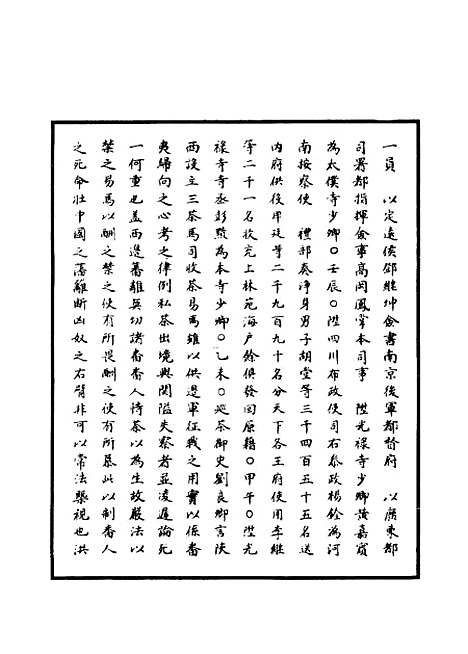 一員　以定遠侯鄧繼坤僉書南京後軍都督府　以廣東都
司署都指揮僉事高岡鳳掌本司事　陞光祿寺少卿黃嘉賓
為太僕寺少卿○壬辰○陞四川布政使司右參政楊銓為河
南按察使　禮部奏淨身男子胡堂等三千四百五十五名送
內府供役甲寅等二千九百九十名分天下各王府使用李繼
等二千一名收充上林苑海戶餘俱發回原籍○甲午○陞光
祿寺寺丞彭黯為本寺少卿○乙未○巡茶御史劉良卿言陝
西設立三茶馬司收茶易馬雖以供邊軍征戰之用實以係番
夷歸向之心考之律例私茶出境與關隘失察者並凌遲論死
一何重也蓋西邊藩籬莫切諸番番人恃茶以為生故嚴法以
禁之易馬以酬之禁之使有所畏酬之使有所慕此以制番人
之死命壯中國之藩籬斷凶奴之右臂非可以常法槩視也洪